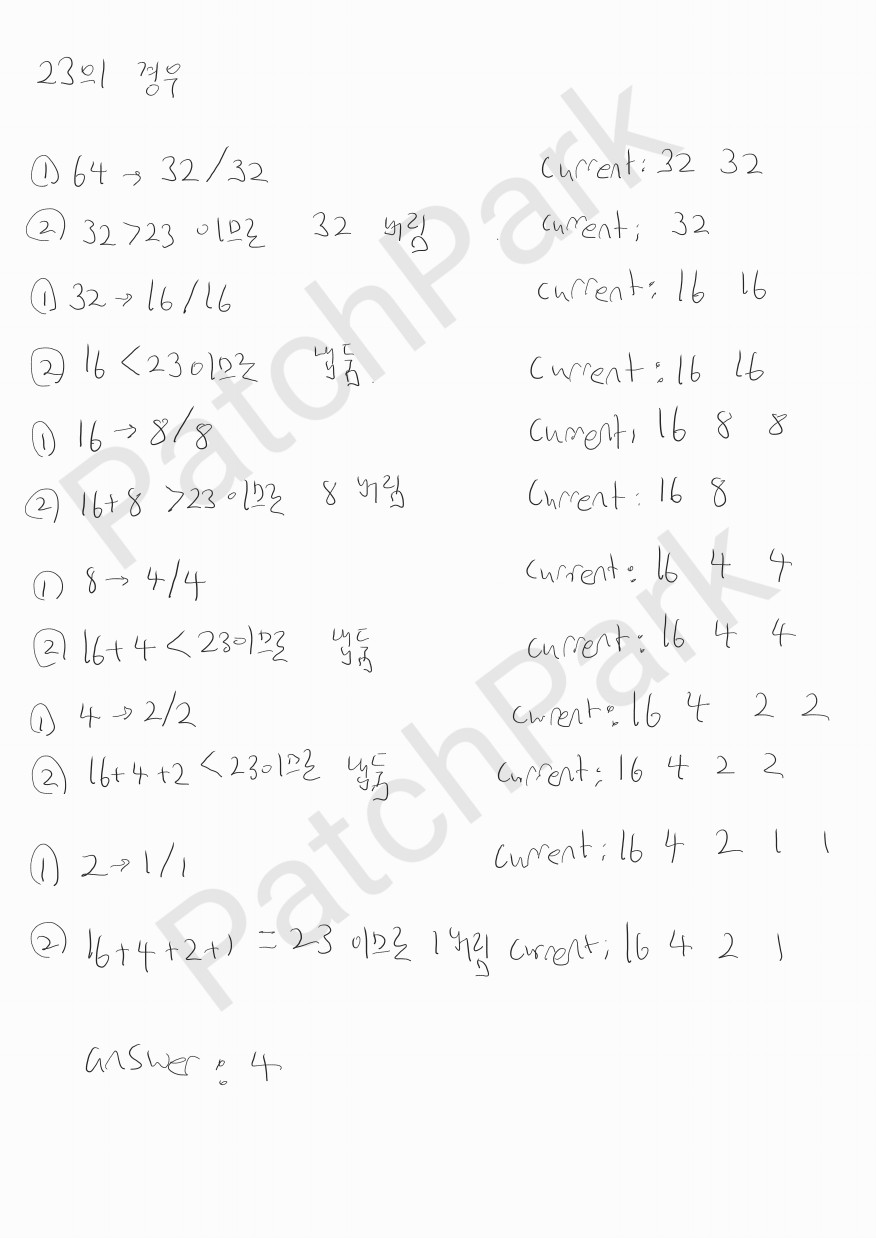 23의 경우
① 64 → 32/32 current: 32 32
② 32>23 이므로 32 버림 current; 32
① 32 → 16/16 current: 16 16
② 16 <23이므로 냅둠 current: 16 16
① 16 → 8/8 current: 16 8 8
② 16+8 >23이므로 8 버림 current: 16 8
① 8 → 4/4 current: 16 4 4
② 16+4 <23이므로 냅둠 current: 16 4 4
① 4 → 2/2 current: 16 4 2 2
② 16+4+2 <23이므로 냅둠 current; 16 4 2 2
① 2 → 1/1 current: 16 4 2 1 1
② 16+4+2+1 = 23 이므로 1 버림 current; 16 4 2 1
answer: 4
PatchPark
PatchPark